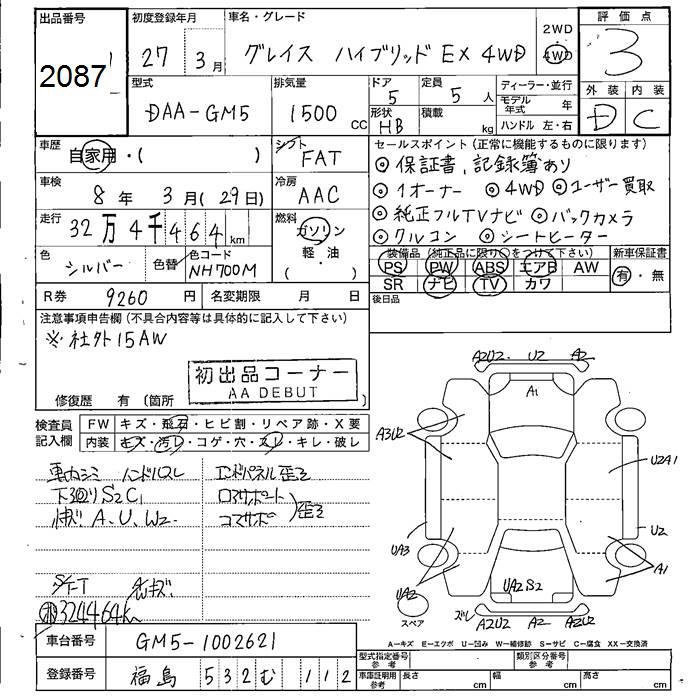 出品番号 初度登録年月 車名・グレード 評価点
2087 27 3月 グレイス ハイブリッド EX 4WD 2WD 4WD 3
型式 排気量 ドア 定員 ディーラー・並行 外装 内装
DAA-GM5 1500 CC 5 5人 モデル年式 年 D C
形状 HB 積載 kg ハンドル 左・右
車歴 シフト セールスポイント(正常に機能するものに限ります)
自家用・( ) FAT ◎保証書、記録簿あり
車検 冷房 ◎1オーナー ◎4WD ◎ユーザー買取
8年 3月(29日) AAC ◎純正フルTVナビ ◎バックカメラ
走行 燃料 ◎クルコン ◎シートヒーター
32万4千464km ガソリン 軽・油 ( )
色 色替 色コード 装備品(純正品に限り○をつけて下さい) 新車保証書
シルバー NH700M PS PW ABS エアB AW 有・無
SR ナビ TV カワ
R券 9260円 名変期限 月 日 後日品
注意事項申告欄(不具合内容等は具体的に記入して下さい)
※社外15AW
初出品コーナー
AA DEBUT
修復歴 有(箇所
検査員記入欄 FW キズ・飛石・ヒビ割・リペア跡・X要
内装 キズ・汚レ・コゲ・穴・スレ・キレ・破レ
車内シミ ハンドルスレ エンドパネル歪ミ
下廻りS2C1 ロアサポート
A、U、W2 コアサポ 歪ミ
S/F-T
324464km
A2U2 U2 A2
A1
A3U2
U2A1
UA3 U2
UA2 A1
UA2S2
スペア ズレ A2U2 A2 A2U2
A―キズ E―エクボ U―凹み W―補修跡 S―サビ C―腐食 XX―交換済
車台番号 GM5-1002621
登録番号 福島 532 む 112
型式指定番号 参考 類別区分番号 参考
車庫証明用 参考 長さ cm 幅 cm 高さ cm